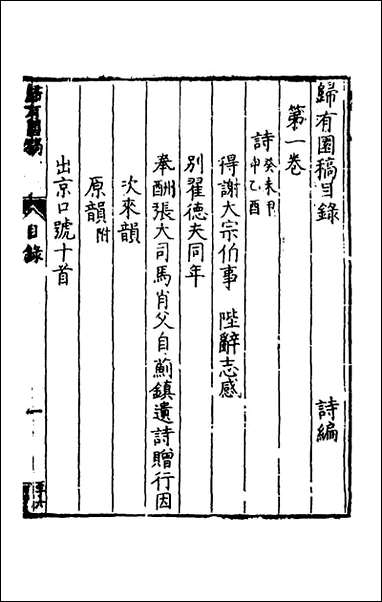 歸有園稿目錄 詩編
第一卷
詩 癸未甲申乙酉
得謝大宗伯事 陛辭志感
別翟德夫同年
奉酬張大司馬肖父自薊鎮遺詩贈行因
次來韻
原韻附
出京口號十首
歸有園稿 目錄 一